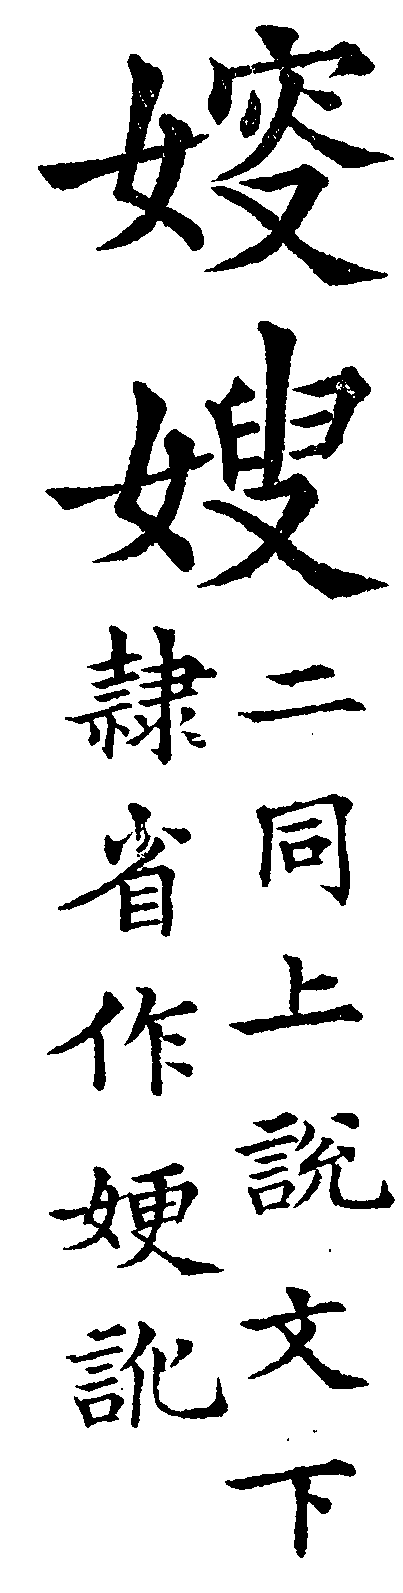 㛮嫂
二同上說文下
隷省作㛐訛